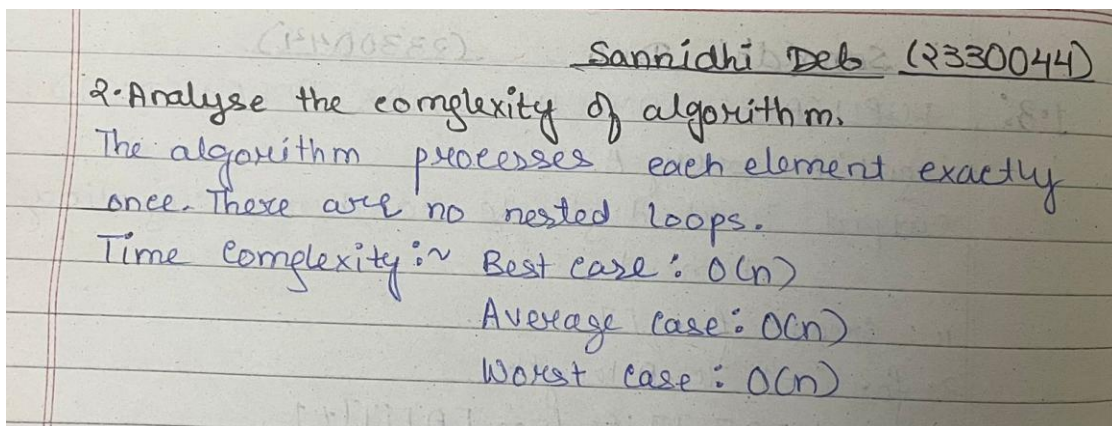 Sannidhi Deb (2330044)
2. Analyse the complexity of algorithm.
The algorithm processes each element exactly
once. There are no nested loops.
Time Complexity :~ Best case : O(n)
Average case : O(n)
Worst case : O(n)